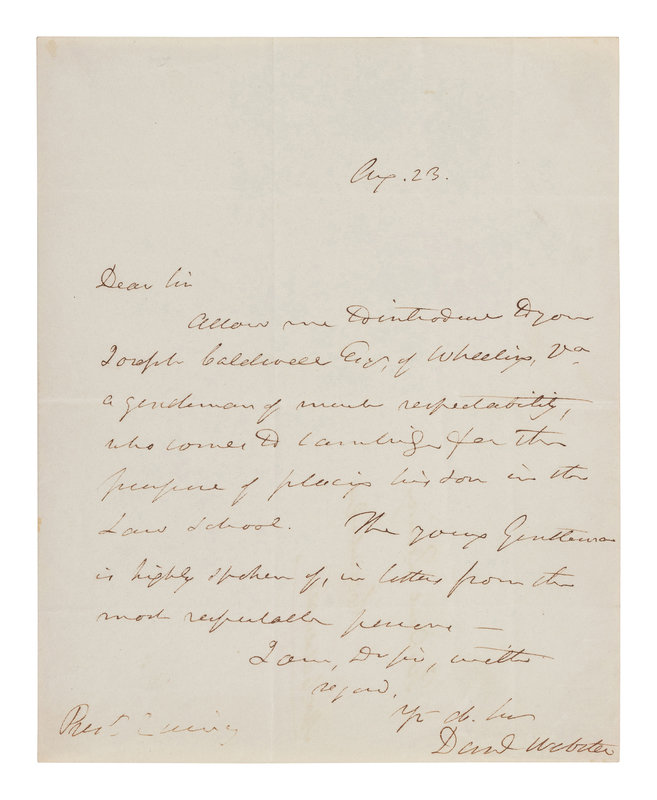 Aug. 23.
Dear Sir
Allow me to introduce to you
Joseph Caldwell Esq, of Wheeling, Va
a gentleman of much respectability,
who comes to Cambridge for the
purpose of placing his son in the
Law School. The young Gentleman
is highly spoken of, in letters from the
most respectable persons —
I am, Dr sir, with
regard,
Yr ob. 
Danl Webster
Presdt Quincy